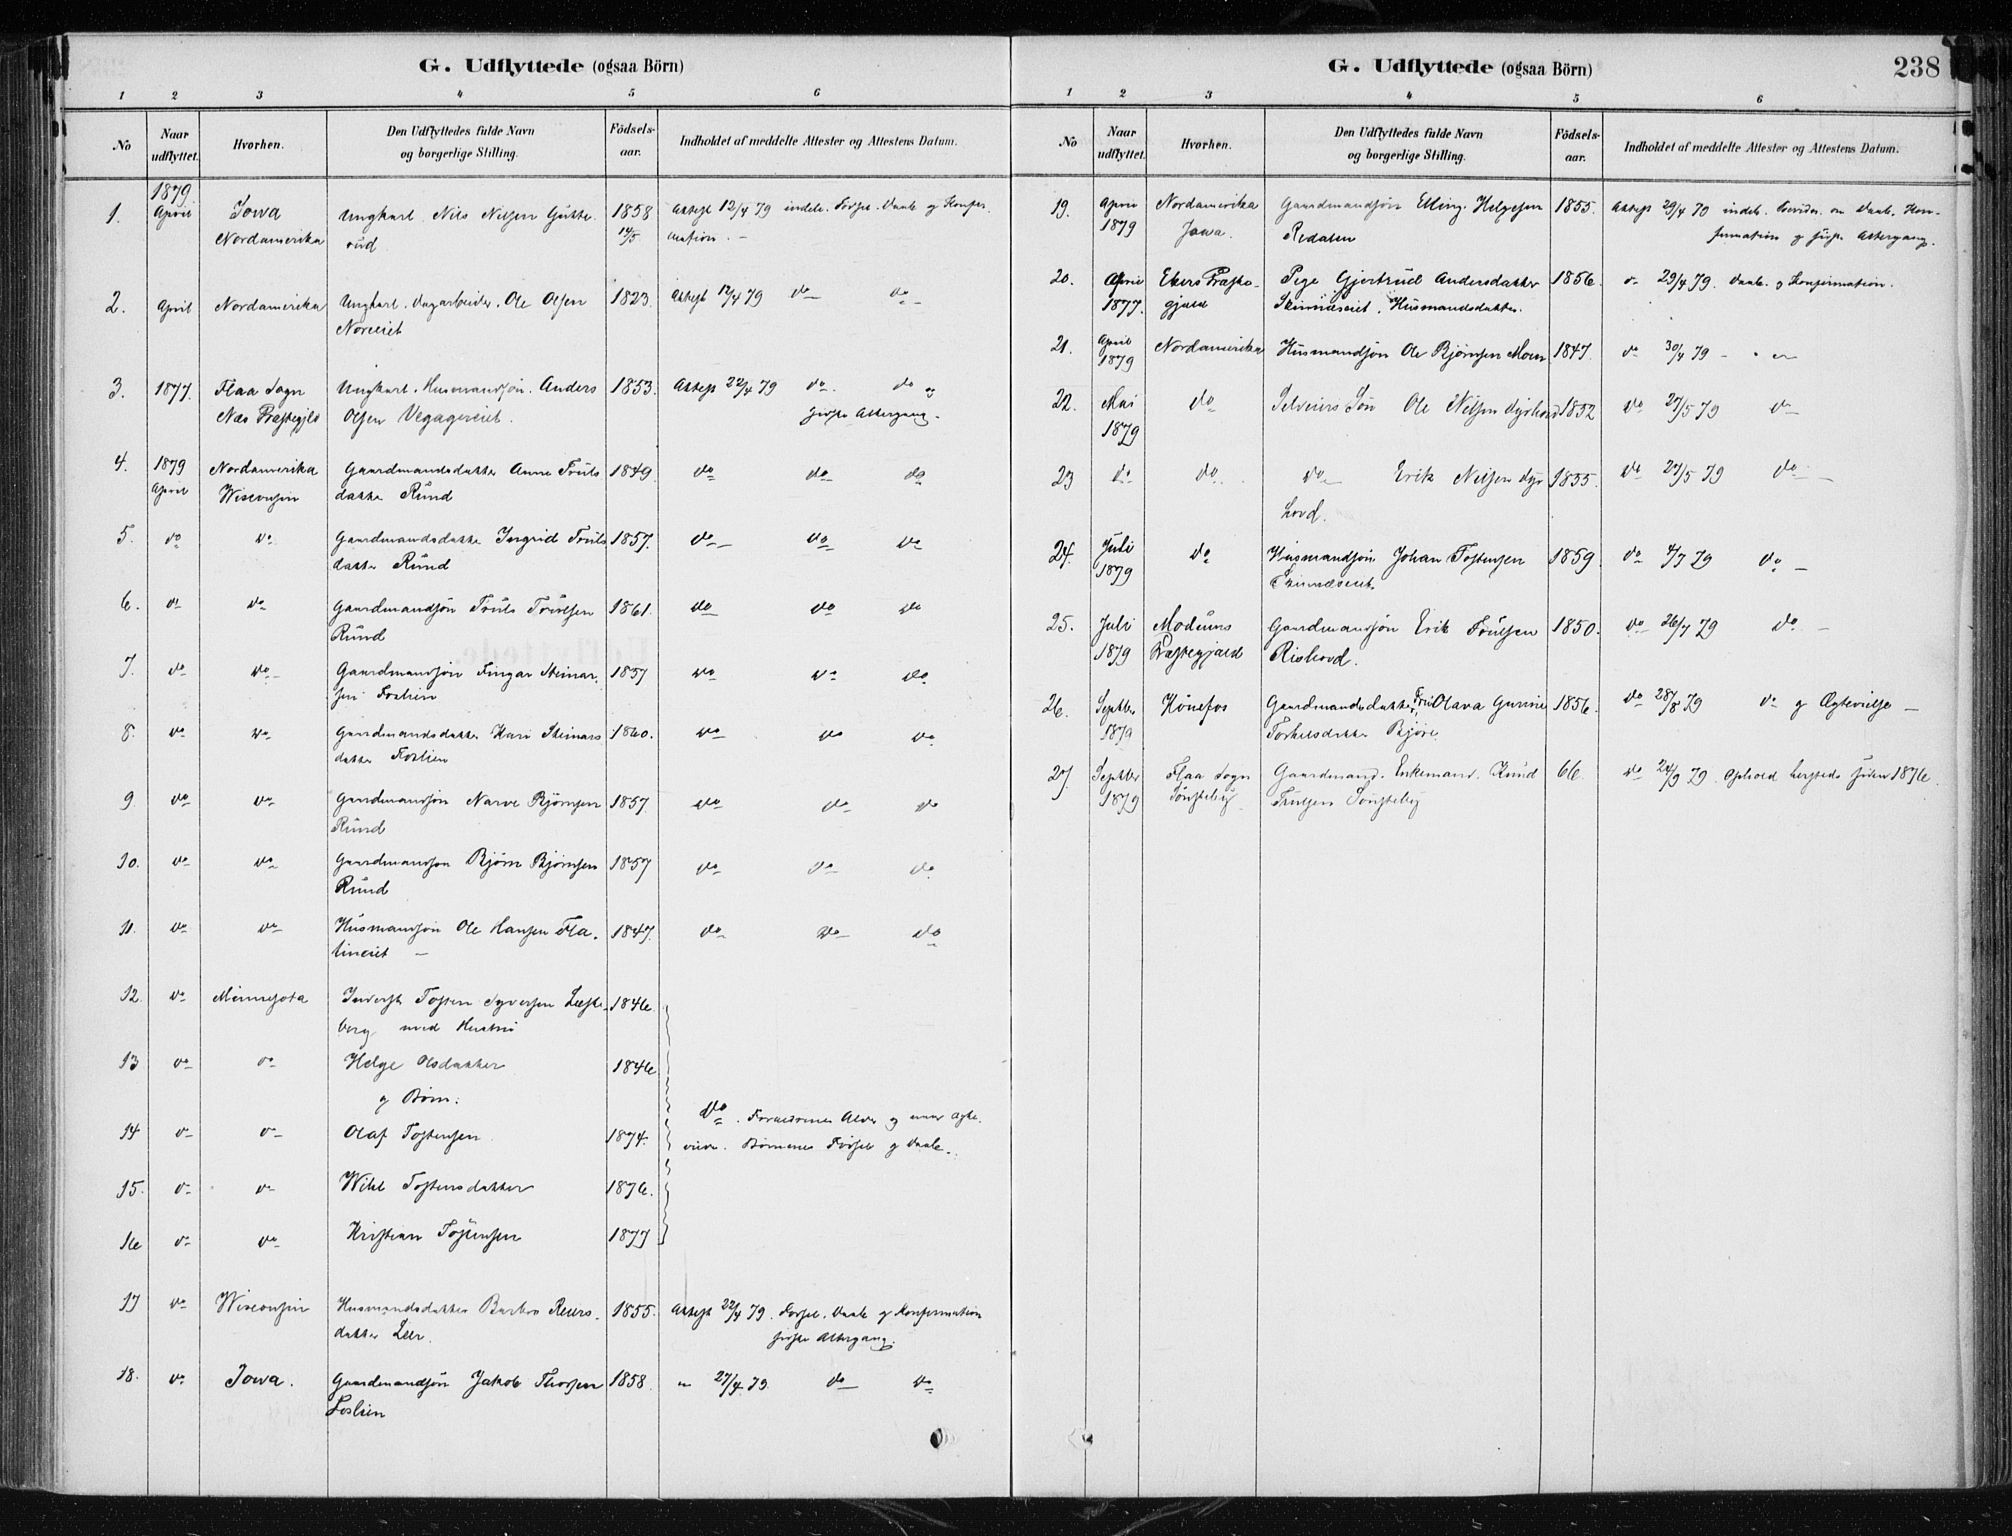 G. Udflyttede (ogsaa Börn)
1 2 3 4 5 6
No Naar udflyttet. Hvorhen. Den Udflyttedes fulde Navn og borgerlige Stilling. Födselsaar. Indholdet af meddelte Attester og Attestens Datum.
1. 1879 April Iowa Ungkarl. Nils Nilsen Gutte- 1858 Attest 12/4 79 indeh. Fødsel. Daab og Konfir-
Nordamerika rud 14/5 mation. —
2. April Nordamerika Ungkarl. Dagarbeider. Ole Olsen 1823. Attest 17/4 79 do do
Noreiet
3. 1877. Flaa Sogn Ungkarl. Husmandsøn. Anders 1853. Attest 22/4 79 do. do og
Næs Præstegjeld Olsen Vegagereiet. sidste Altergang.
4. 1879 Nordamerika Gaardmandsdatter Anne Truls 1849. do do do
April Wisconsin datter Rund
5. do do. Gaardmandsdatter Ingrid Truls 1857. do do do
datter Rund
6. do do Gaardmandsøn Truls Trulsen 1861. do do do
Rund
7. do do Gaardmandsøn Fingar Steinar- 1857 do do do.
sen Foslien
8. do do Gaardmandsdatter Kari Steinars 1860. do do do
datter Foslien
9. do do Gaardmandsøn Narve Bjørnsen 1857. do do do
Rund
10. do do Gaardmandsøn Bjørn Bjørnsen 1857 do do do.
Rund
11. do do Husmandsøn Ole Hansen Fla- 1847. do do do
tineiet —
12. do Minnesota Inderst Tosten Syversen 1846.
berg med Hustru
13 do do Helge Olsdatter 1846
g Børn:
do. Forældrenes Alder og
14 do do Olaf Tostensen 1874.
Børnenes Fødsel og Daab.
15. do do Tostensdatter 1876.
16 do do Kristian Tostensen 1877
17 do Wisconsin Husmandsdatter Barbro Reiers- 1855. Attest 22/4 79. Fødsel. Daab og Konfirmation
datter Leer. sidste Altergang.
18. do Iowa. Gaardmandsøn Jakob Thorsen 1858. " 27/4 79. do do
Foslien
G. Udflyttede (ogsaa Börn) 238
1 2 3 4 5 6
No Naar udflyttet. Hvorhen. Den Udflyttedes fulde Navn og borgerlige Stilling. Födselsaar. Indholdet af meddelte Attester og Attestens Datum.
19. April Nordamerika Gaardmandsøn Elling Helgesen 1855. Attest 29/4 79 indeh. om Daab. Kon-
1879 Iowa. Redalen firmation g sidste Altergang.
20. April Ekers Præste- Pige Gjertrud Andersdatter 1856. do 29/4 79. Daab. og Konfirmation.
1877. gjæld Husmandsdatter.
21. April Nordamerika Husmandsøn Ole Bjørnsen Moen 1847. do 30/4 79 — do
1879
22. Mai do Selveiers Søn Ole Nilsen Dyrhovd 1852 do 27/5 79 do
1879
23 do do do Erik Nilsen Dyr 1835. do 27/5 79 do
hovd.
24. Juli do Husmandsøn Johan Tostensen 1859. do 4/7 79 do —
1879
25. Juli Modums Gaardmandsøn Erik Trulsen 1850. do 26/7 79 do —
1879 Præstegjæld Rishovd.
26. Septbr Hønefos Gaardmandsdatter Olava Gurine 1856. do 28/8 79 do g Ægtevielse —
1879 Torkelsdatter Bjøre.
27. Septbr Flaa Sogn Gaardmand. Enkemand. Knud 66. do 24/9 79. Ophold herstede siden 1876.
1879 Sønsteby Trulsen Sønsteby